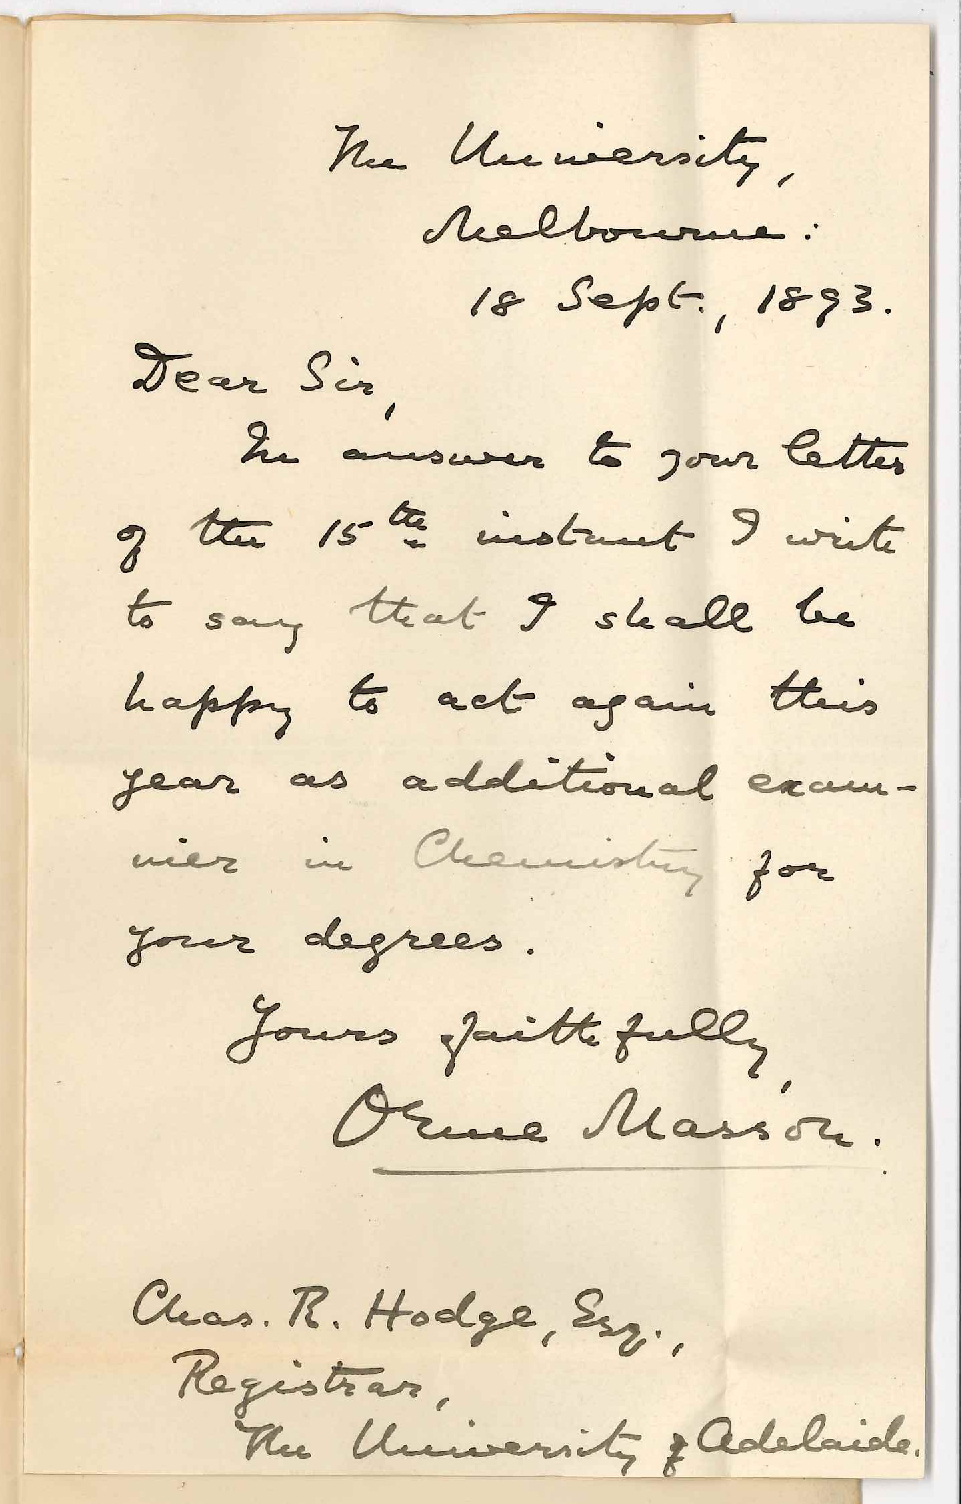 The University,
Melbourne:
18 Sept., 1893.
Dear Sir,
In answer to your letter
of the 15th instant I write
to say that I shall be
happy to act again this
year as additional exam-
iner in Chemistry for
your degrees.
Yours faithfully,
Orme Masson.
Chas. R. Hodge, Esq.,
Registrar,
The University of Adelaide.